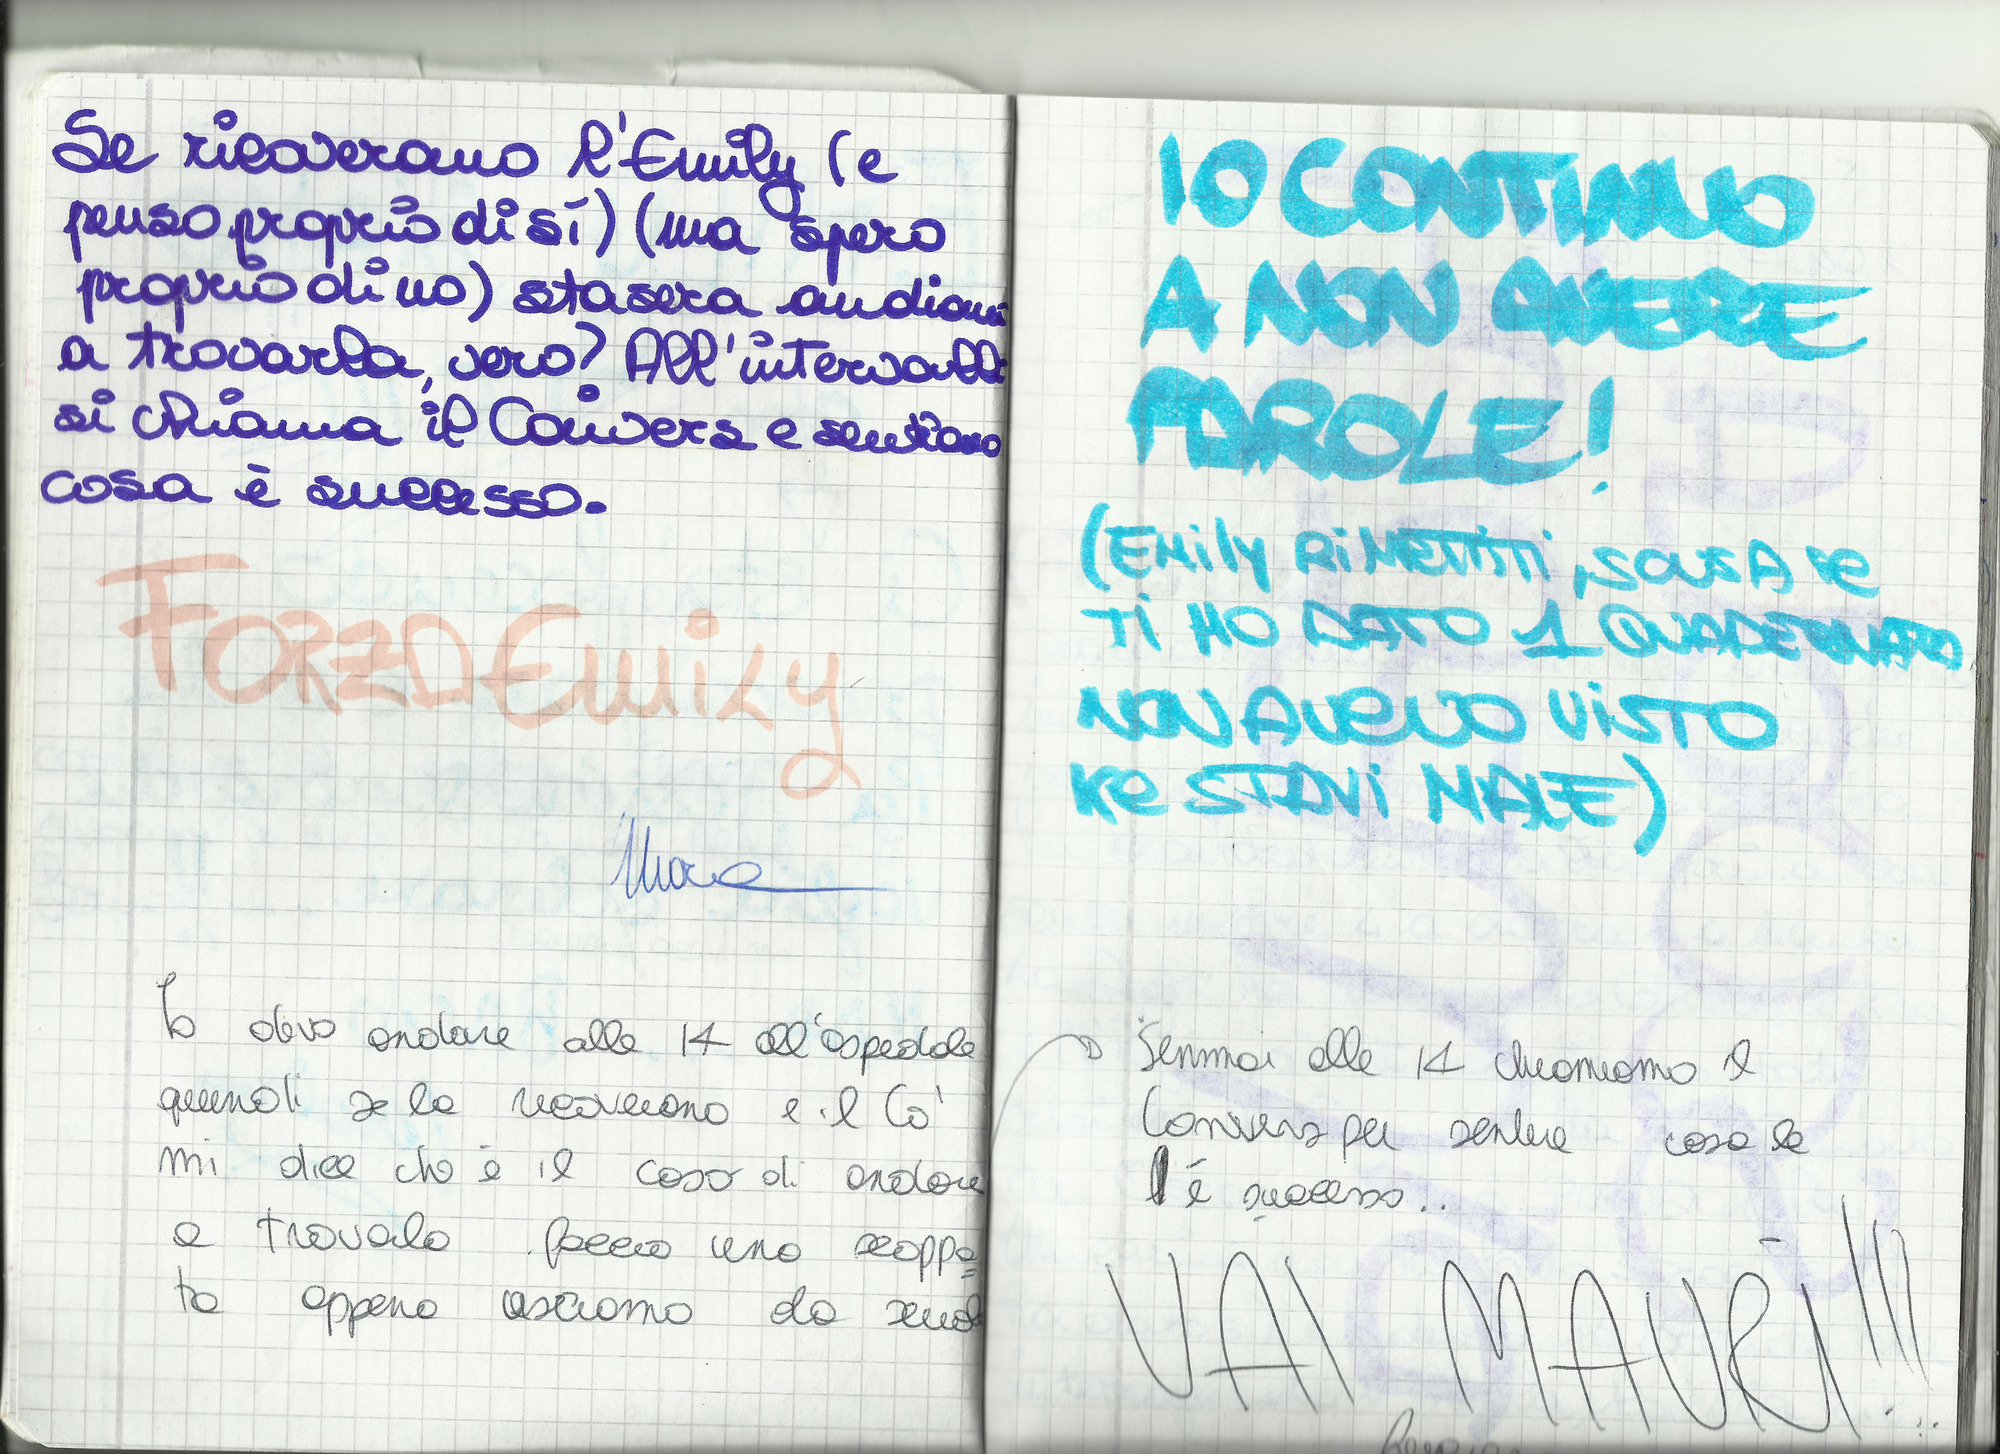 Se ricoverano l'Emily (e
penso proprio di sì) (ma spero
proprio di no) stasera andiamo
a trovarla, vero? All'intervallo
si chiama il Convers e sentiamo
cosa è successo.
FORZA EMILY
Mara
Io devo andare alle 14 all'ospedale
quindi se la ricoverano e il Co'
mi dice che è il caso di andare
a trovala faccio una scappa=
ta appena usciamo da scuola
IO CONTINUO
A NON AVERE
PAROLE!
(EMily RiMETTiTi, SCUSA se
Ti HO DATO 1 QUADERNATA
NON AVEVO ViSTO
Ke STAVi MALE)
Senmai alle 14 chiamiamo il
Convers per sentire cosa le
è successo..
VAI MAURI!!!...